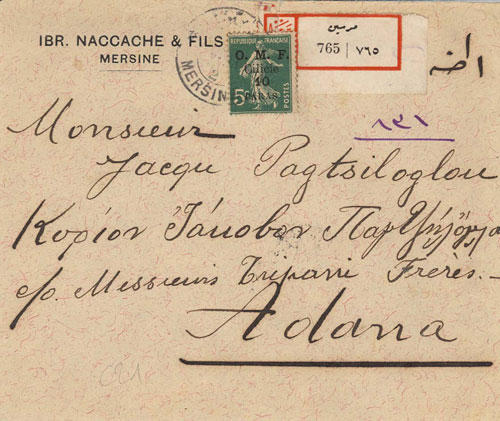 IBR. NACCACHE & FILS
MERSINE
MERSIN
REPUBLIQUE FRANÇAISE
O. M. F.
Cilicie
10
PARAS
5
POSTES
مرسين
765 | ٧٦٥
اطنه
١٣١
Monsieur
Jacqu Pagtsiloglou
Κυρίον Ἰάκωβον
c/o Messieurs Tripani Frères
Adana